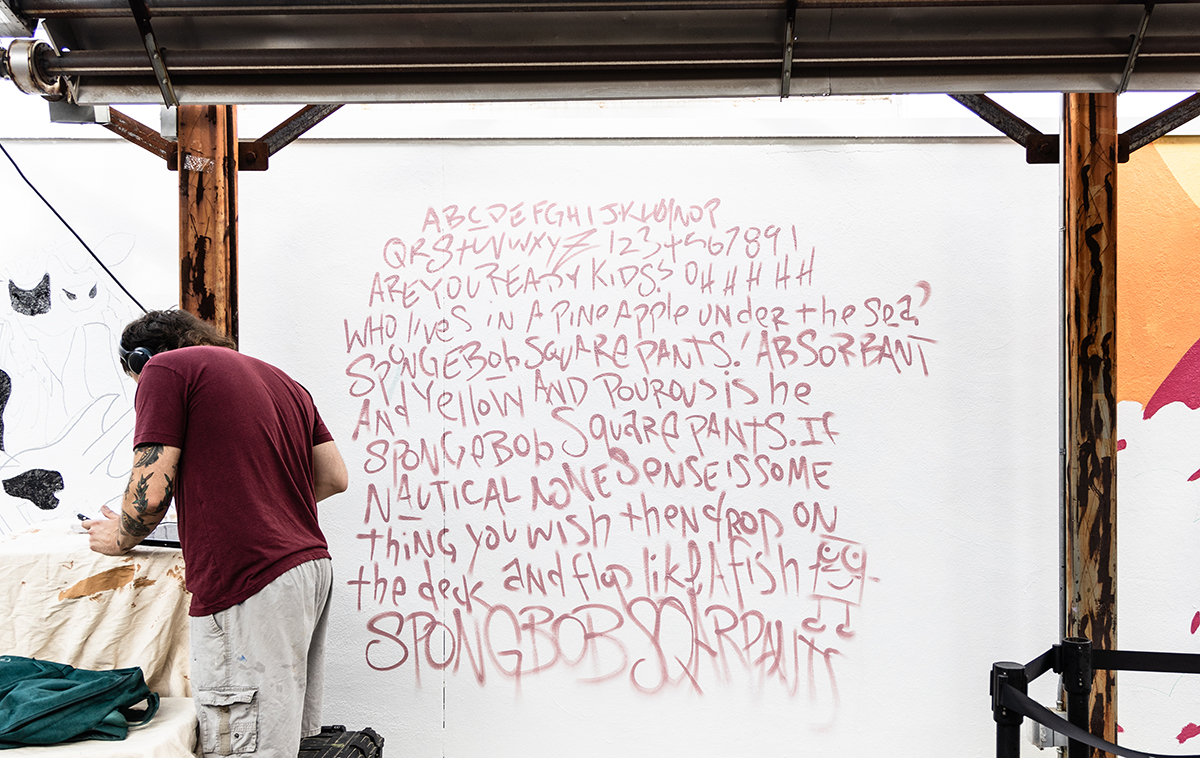 ABCDEFGHIJKLMNOP
QRStUVWXYZ 1234567891
ARE YOU READY KIDS? OHHHHH
WHO liveS iN A PiNeApple UNDeR the Sea?
SPONGEBOb SQUARE PANTS! ABSORBANT
ANd Yellow AND POUROUS is he
SPONGEBOb SquaRe PANTS. IF
NAUTICAL NONE SeNSe IS SOMe
thiNG you wish theN dROP ON
the deck and flop like A fish
SPONGBOB SQARPANTS